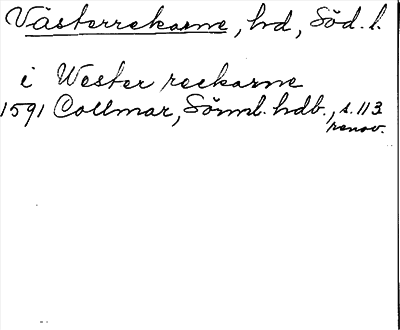 Västerrekarne, hd, Söd. l.
i Wester reckarne
1591 Collmar, Sörml. hdb., s. 113
renov.